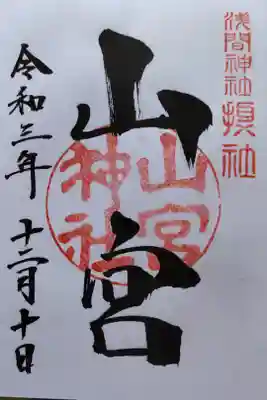 浅間神社摂社
山宮
山宮
神社
令和三年十二月十日